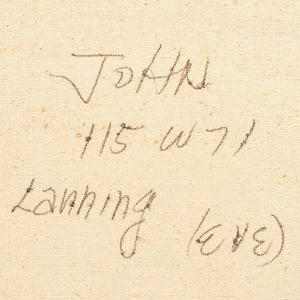 JOHN
115 W 71
Lanning (EVE)